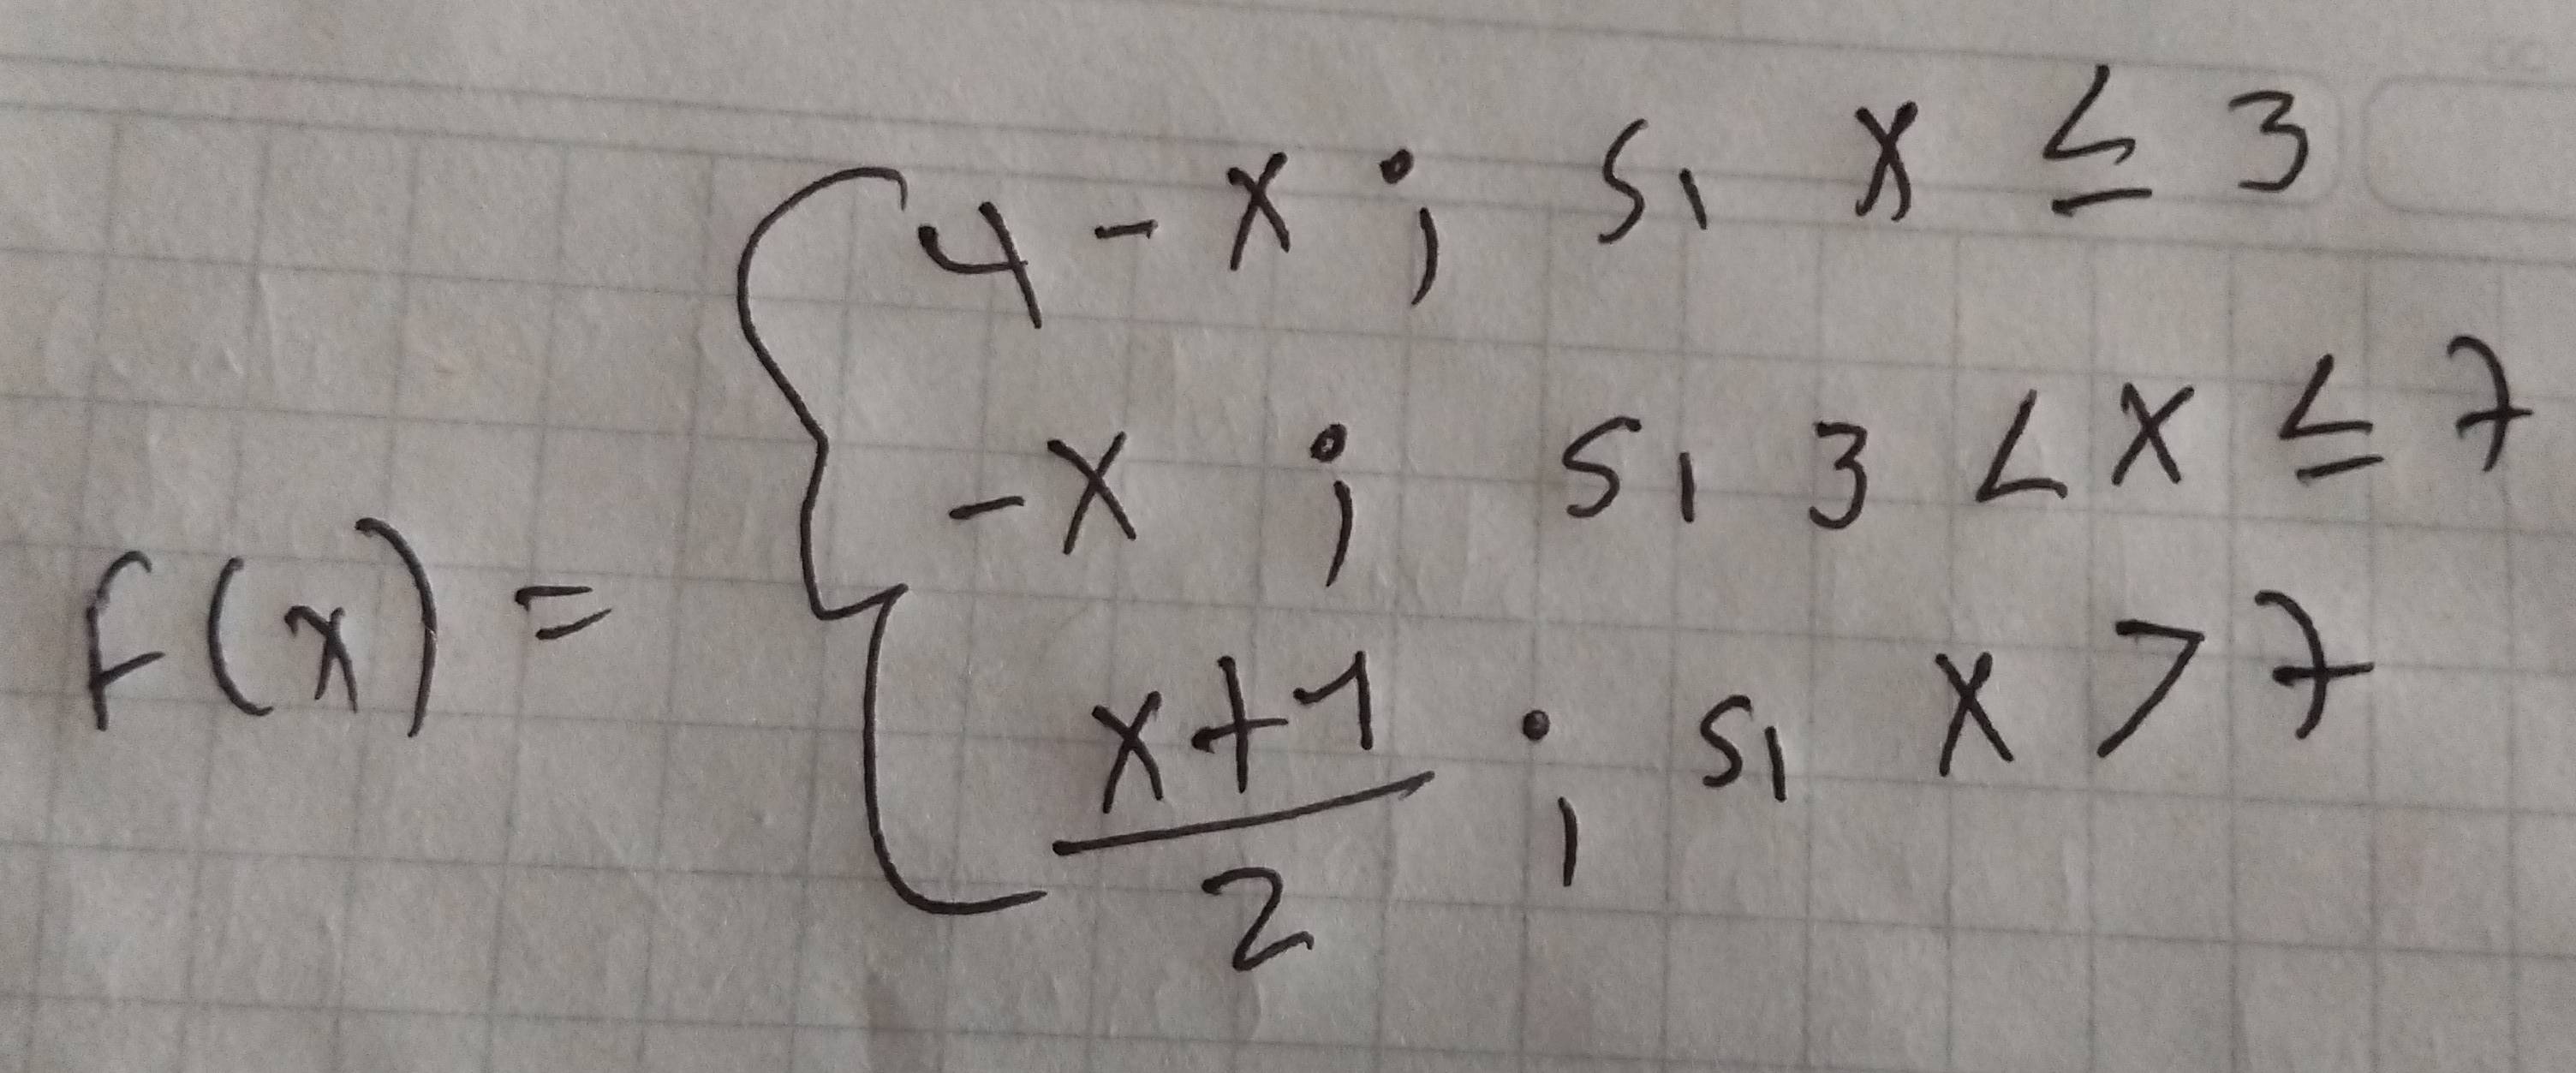 4 - x ; si x ≤ 3
-x ; si 3 < x ≤ 7
F(x) =
x+1
2 ; si x > 7